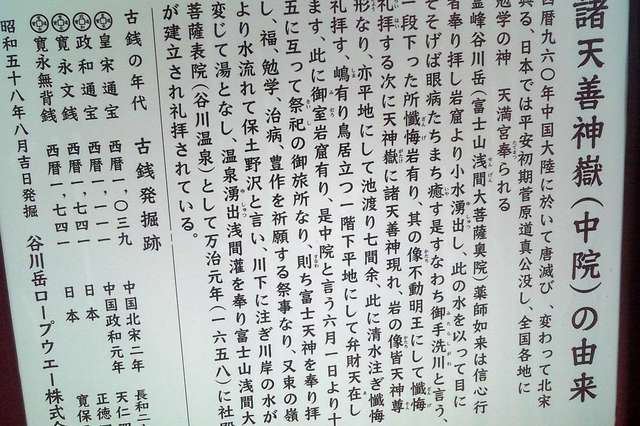 諸天善神嶽(中院)の由来
西暦九六〇年中国大陸に於いて唐滅び、変わって北宋
興る、日本では平安初期菅原道真公没し、全国各地に
勉学の神 天満宮奉られる
霊峰谷川岳(富士山浅間大菩薩奥院)薬師如来は信心行
者奉り拝し岩窟より小水湧出し、此の水を以つて目に
そそげば眼病たちまち癒す是すなわち御手洗川と言う、
一段下った所懺悔岩有り、其の像不動明王にして懺悔
礼拝する次に天神嶽に諸天善神現れ、岩の像皆天神尊
形なり、亦平地にして池渡り七間余、此に清水注ぎ懺悔
礼拝す、嶋有り鳥居立つ一階下平地にして弁財天在し
ます、此に御室岩窟有り、是中院と言う六月一日より十
五に互って祭祀の御旅所なり、則ち富士天神を奉り拝
し、福、勉学、治病、豊作を祈願する祭事なり、又束の嶺
より水流れて保土野沢と言い、川下に注ぎ川岸の水が
変じて湯となし、温泉湧出浅間灌を奉り富士山浅間大
菩薩表院(谷川温泉)として万治元年(一六五八)に社殿
が建立され礼拝されている。
古銭の年代 古銭発掘跡
皇宋通宝 西暦一、〇三九 中国北宋二年 長和二
政和通宝 西暦一、一一一 中国政和元年 天仁四
寛永文銭 西暦一、七四一 日本 正徳
寛永無背銭 西暦一、七四一 日本 寛保
昭和五十八年八月吉日発掘 谷川岳ロープウエー株式会